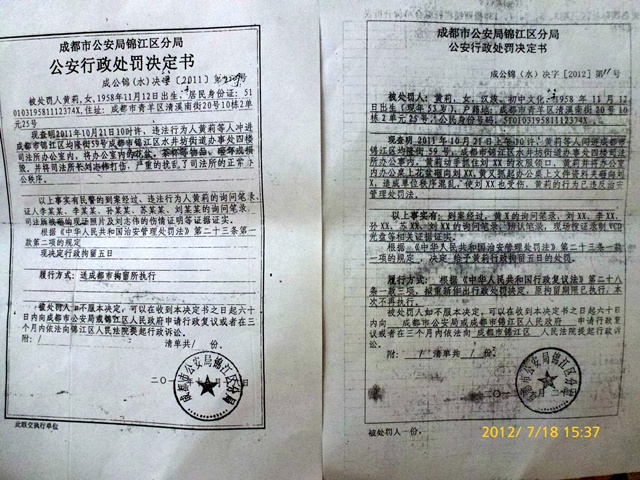 成都市公安局锦江区分局
公安行政处罚决定书
成公锦(水)决字[2011]第
被处罚人黄莉,女,1958年11月12日出生,居民身份证:51
010319581112374X,住址:成都市青羊区清溪南街20号10栋2单
元25号
现查明2011年10月21日10时许,违法行为人黄莉等人冲进
成都市锦江区均隆街59号成都市锦江区水井坊街道办事处四楼
司法所办公室内,将办公室内
毁,并将司法所长刘志伟打伤,严重的扰乱了司法所的正常办
公秩序。
以上事实有民警的到案经过、违法行为人黄莉的询问笔录、
证人李某某、李某某、孙某某、苏某某、刘某某的询问笔录、
司法所被砸的现场照片及刘志伟的伤情证明等证据证实。
根据《中华人民共和国治安管理处罚法》第二十三条第一
款第二项的规定
现决定行政拘留五日
履行方式:送成都市拘留所执行
被处罚人如不服本决定,可以在收到本决定书之日起六十
日内向成都市公安局或锦江区人民政府申请行政复议或者在三
个月内依法向锦江区人民法院提起行政诉讼。
附:/ 清单共/份。
成都市公安局锦江区分局
此联交执行单位
成都市公安局锦江区分局
公安行政处罚决定书
成公锦(水)决字[2012]第11号
被处罚人:黄莉,女,汉族,初中文化,1958年11月12
日出生(现年53岁),户籍地:成都市青羊区清溪南街20号10
栋2单元25号,公民身份号码:51010319581112374X。
现查明2011年10月21日上午10许,黄莉等人闯进成都市
锦江区均隆街59号,成都市锦江区水井坊街道办事处四楼司
法所办公室内。黄莉动手抓住刘XX
内办公桌上花盆砸向刘X,黄又抓起办公桌上文件资料来砸向刘
X,造成单位秩序混乱,使刘XX也受伤,黄莉的行为已违反治安
管理处罚法。
以上事实有:到案经过、黄X的询问笔录,刘XX、李XX、
孙XX、苏XX、刘XX的询问笔录,辨认笔录,现场提证录制VCD
光盘等相关证据证实。
根据《中华人民共和国治安管理处罚法》第二十三条一款
一项的规定,决定给予黄莉行政拘留五日的处罚。
履行方式:根据《中华人民共和国行政复议法》第二十八
条一款三项,拟重新作出行政处罚决定,原拘留期限已执行,本
次不再执行。
被处罚人如不服本决定,可以在收到本决定书之日起六十
日内向 成都市公安局或成都市锦江区人民政府 申请行政复
议或者在三个月内依法向 成都市锦江区 人民法院提起行政诉
讼。
附:/ 清单共/份。
成都市公安局锦江区分局
被处罚人一份。
2012/ 7/18 15:37